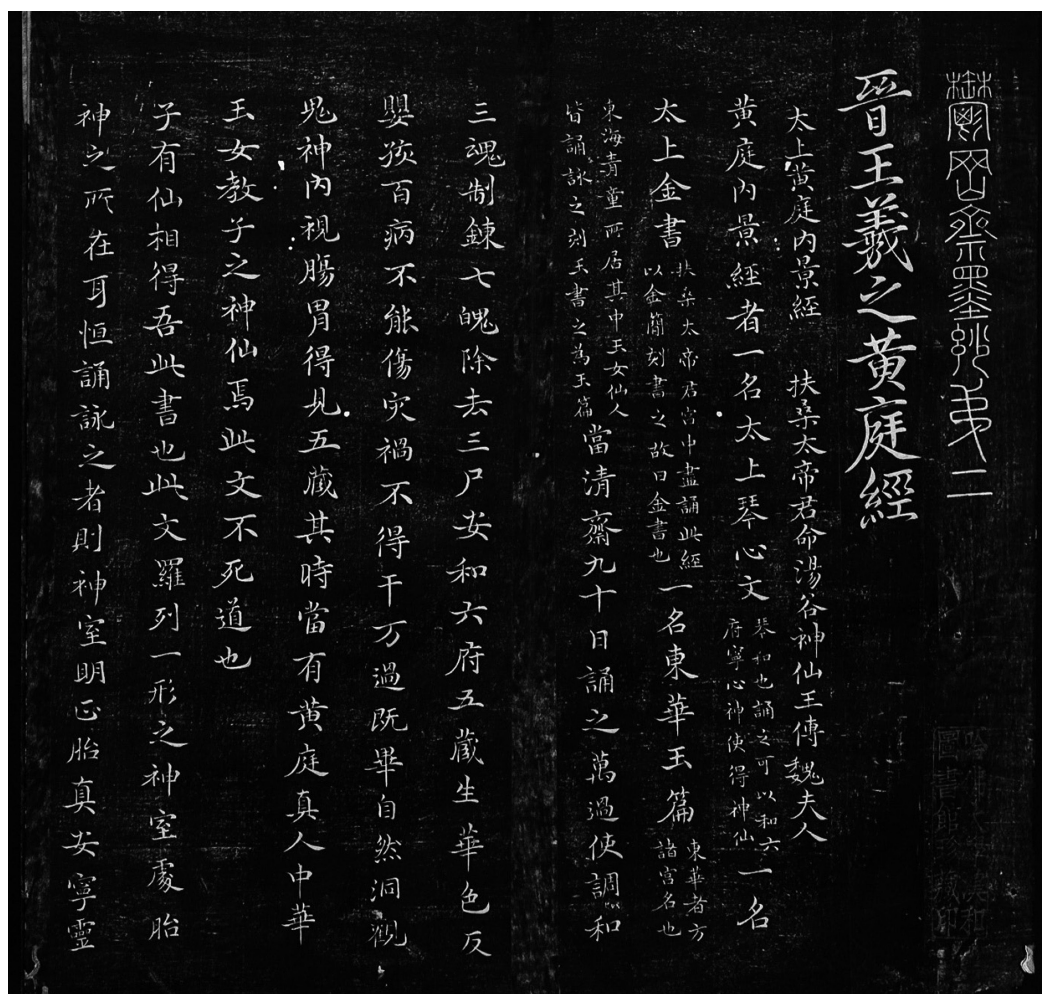 鬱岡齋墨玅弟二
晉王羲之黃庭經
太上黃庭內景經 扶桑太帝君命湯谷神仙王傳魏夫人
黃庭內景經者一名太上琴心文 琴和也誦之可以和六府寧心神使得神仙 一名
太上金書 扶桑太帝君宮中盡誦此經以金簡刻書之故曰金書也 一名東華玉篇 東華者方諸宮名也
東海青童所居其中玉女仙人皆誦詠之刻玉書之為玉篇 當清齋九十日誦之萬過使調和
三魂制鍊七魄除去三尸安和六府五藏生華色反
嬰孩百病不能傷灾禍不得干万過既畢自然洞觀
鬼神內視腸胃得見五藏其時當有黃庭真人中華
玉女教子之神仙焉此文不死道也
子有仙相得吾此書也此文羅列一形之神室處胎
神之所在耳恒誦詠之者則神室明正胎真安寧靈
哈佛大學漢和
圖書館珍藏印